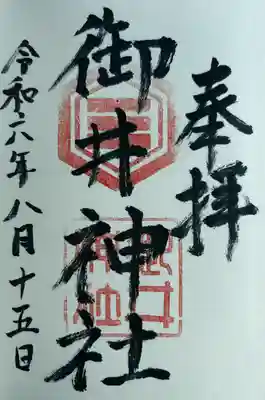 奉拝
御井神社
令和六年八月十五日